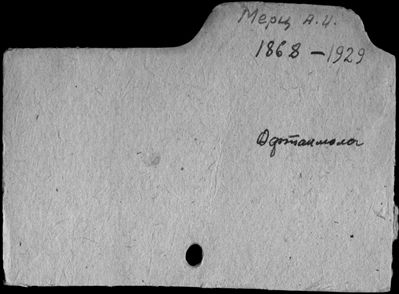 Мерц А.И.
1868 – 1929
Офтаимолог